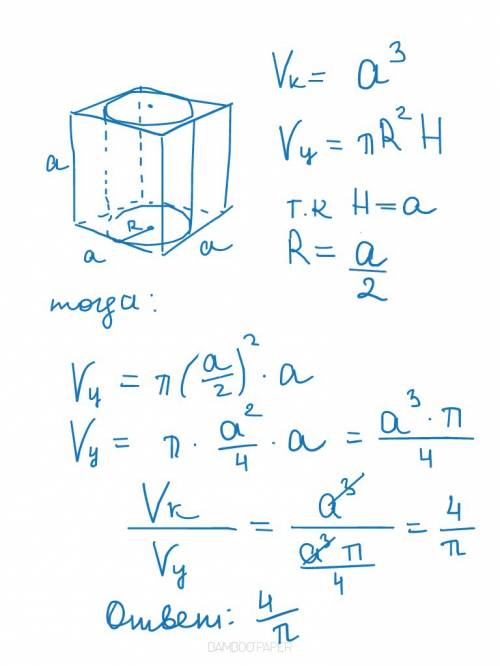 Vк = a³
Vц = πR²H
a
т.к H = a
R
R = a/2
a
a
тогда:
Vц = π(a/2)² · a
Vц = π · a²/4 · a = a³ · π/4
Vк/Vц = a³/(a³π/4) = 4/π
Ответ: 4/π
BAMBOOPAPER